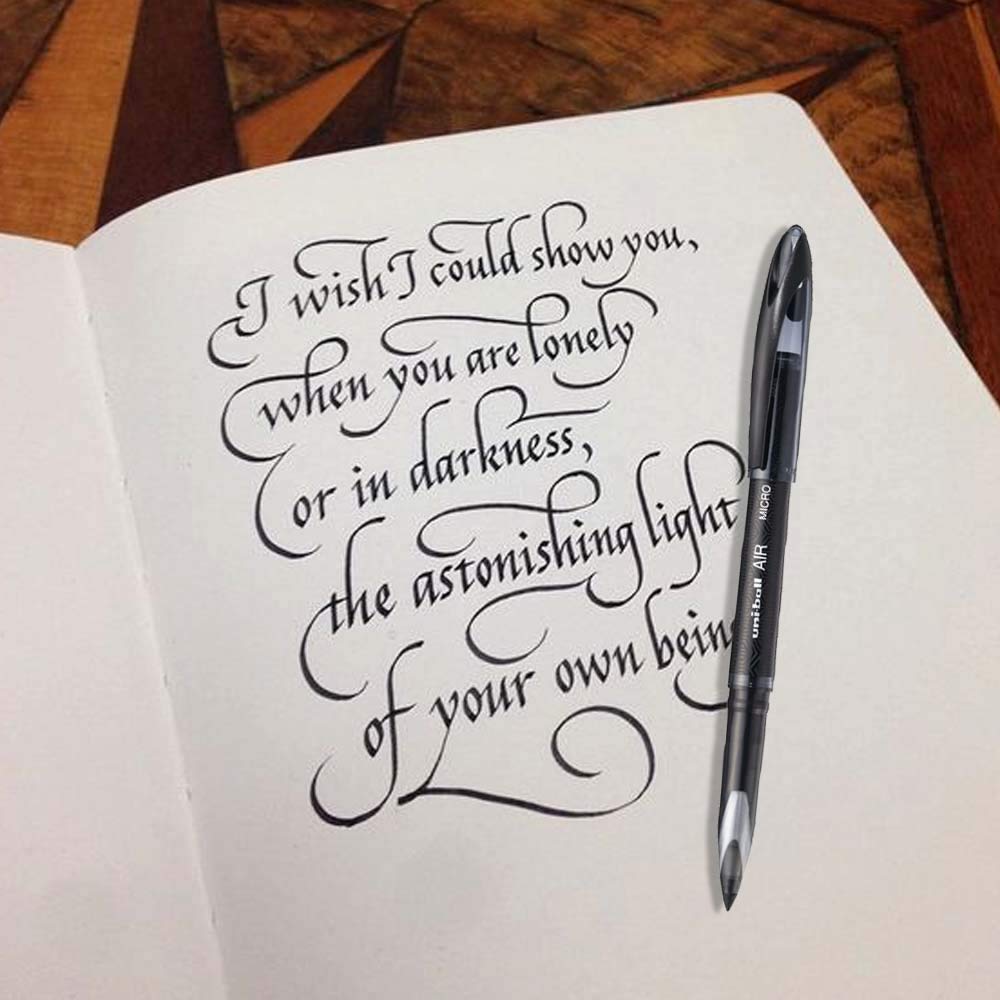 I wish I could show you,
when you are lonely
or in darkness,
the astonishing light
of your own bein
uni-ball AIR MICRO